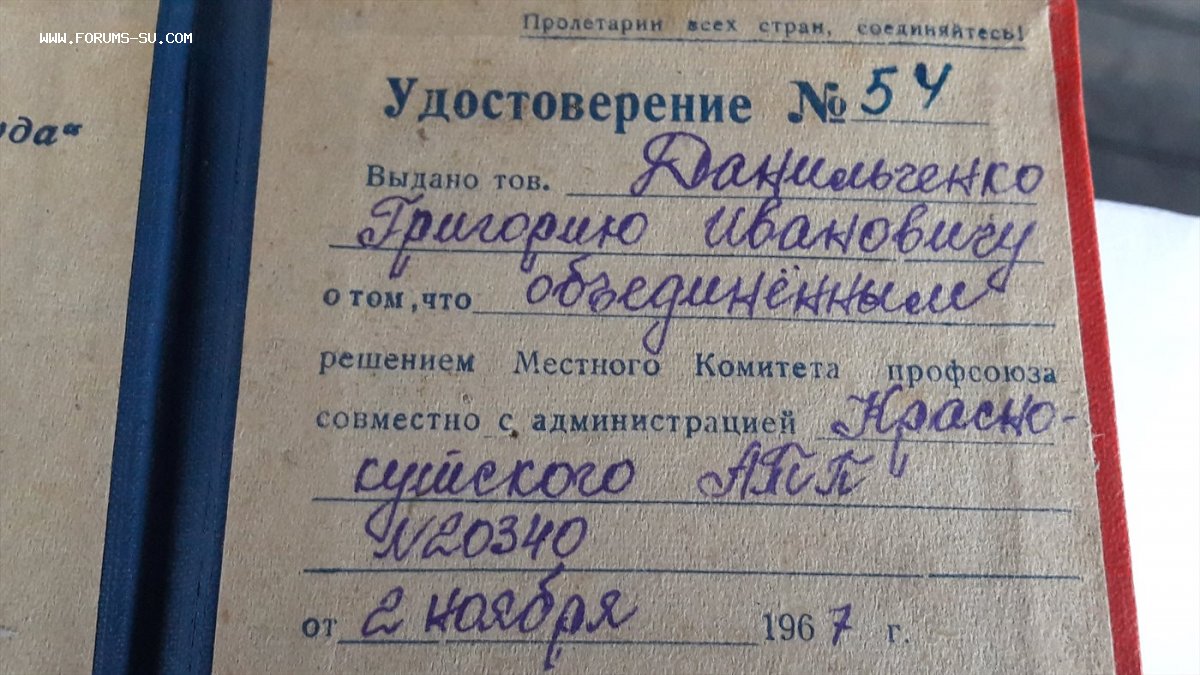 www.forums-su.com
Пролетарии всех стран, соединяйтесь!
уда“
Удостоверение № 54
Выдано тов. Данильченко
Григорию Ивановичу
о том, что объединённым
решением Местного Комитета профсоюза
совместно с администрацией Красно-
кутского АТП
№20340
от 2 ноября 1967 г.